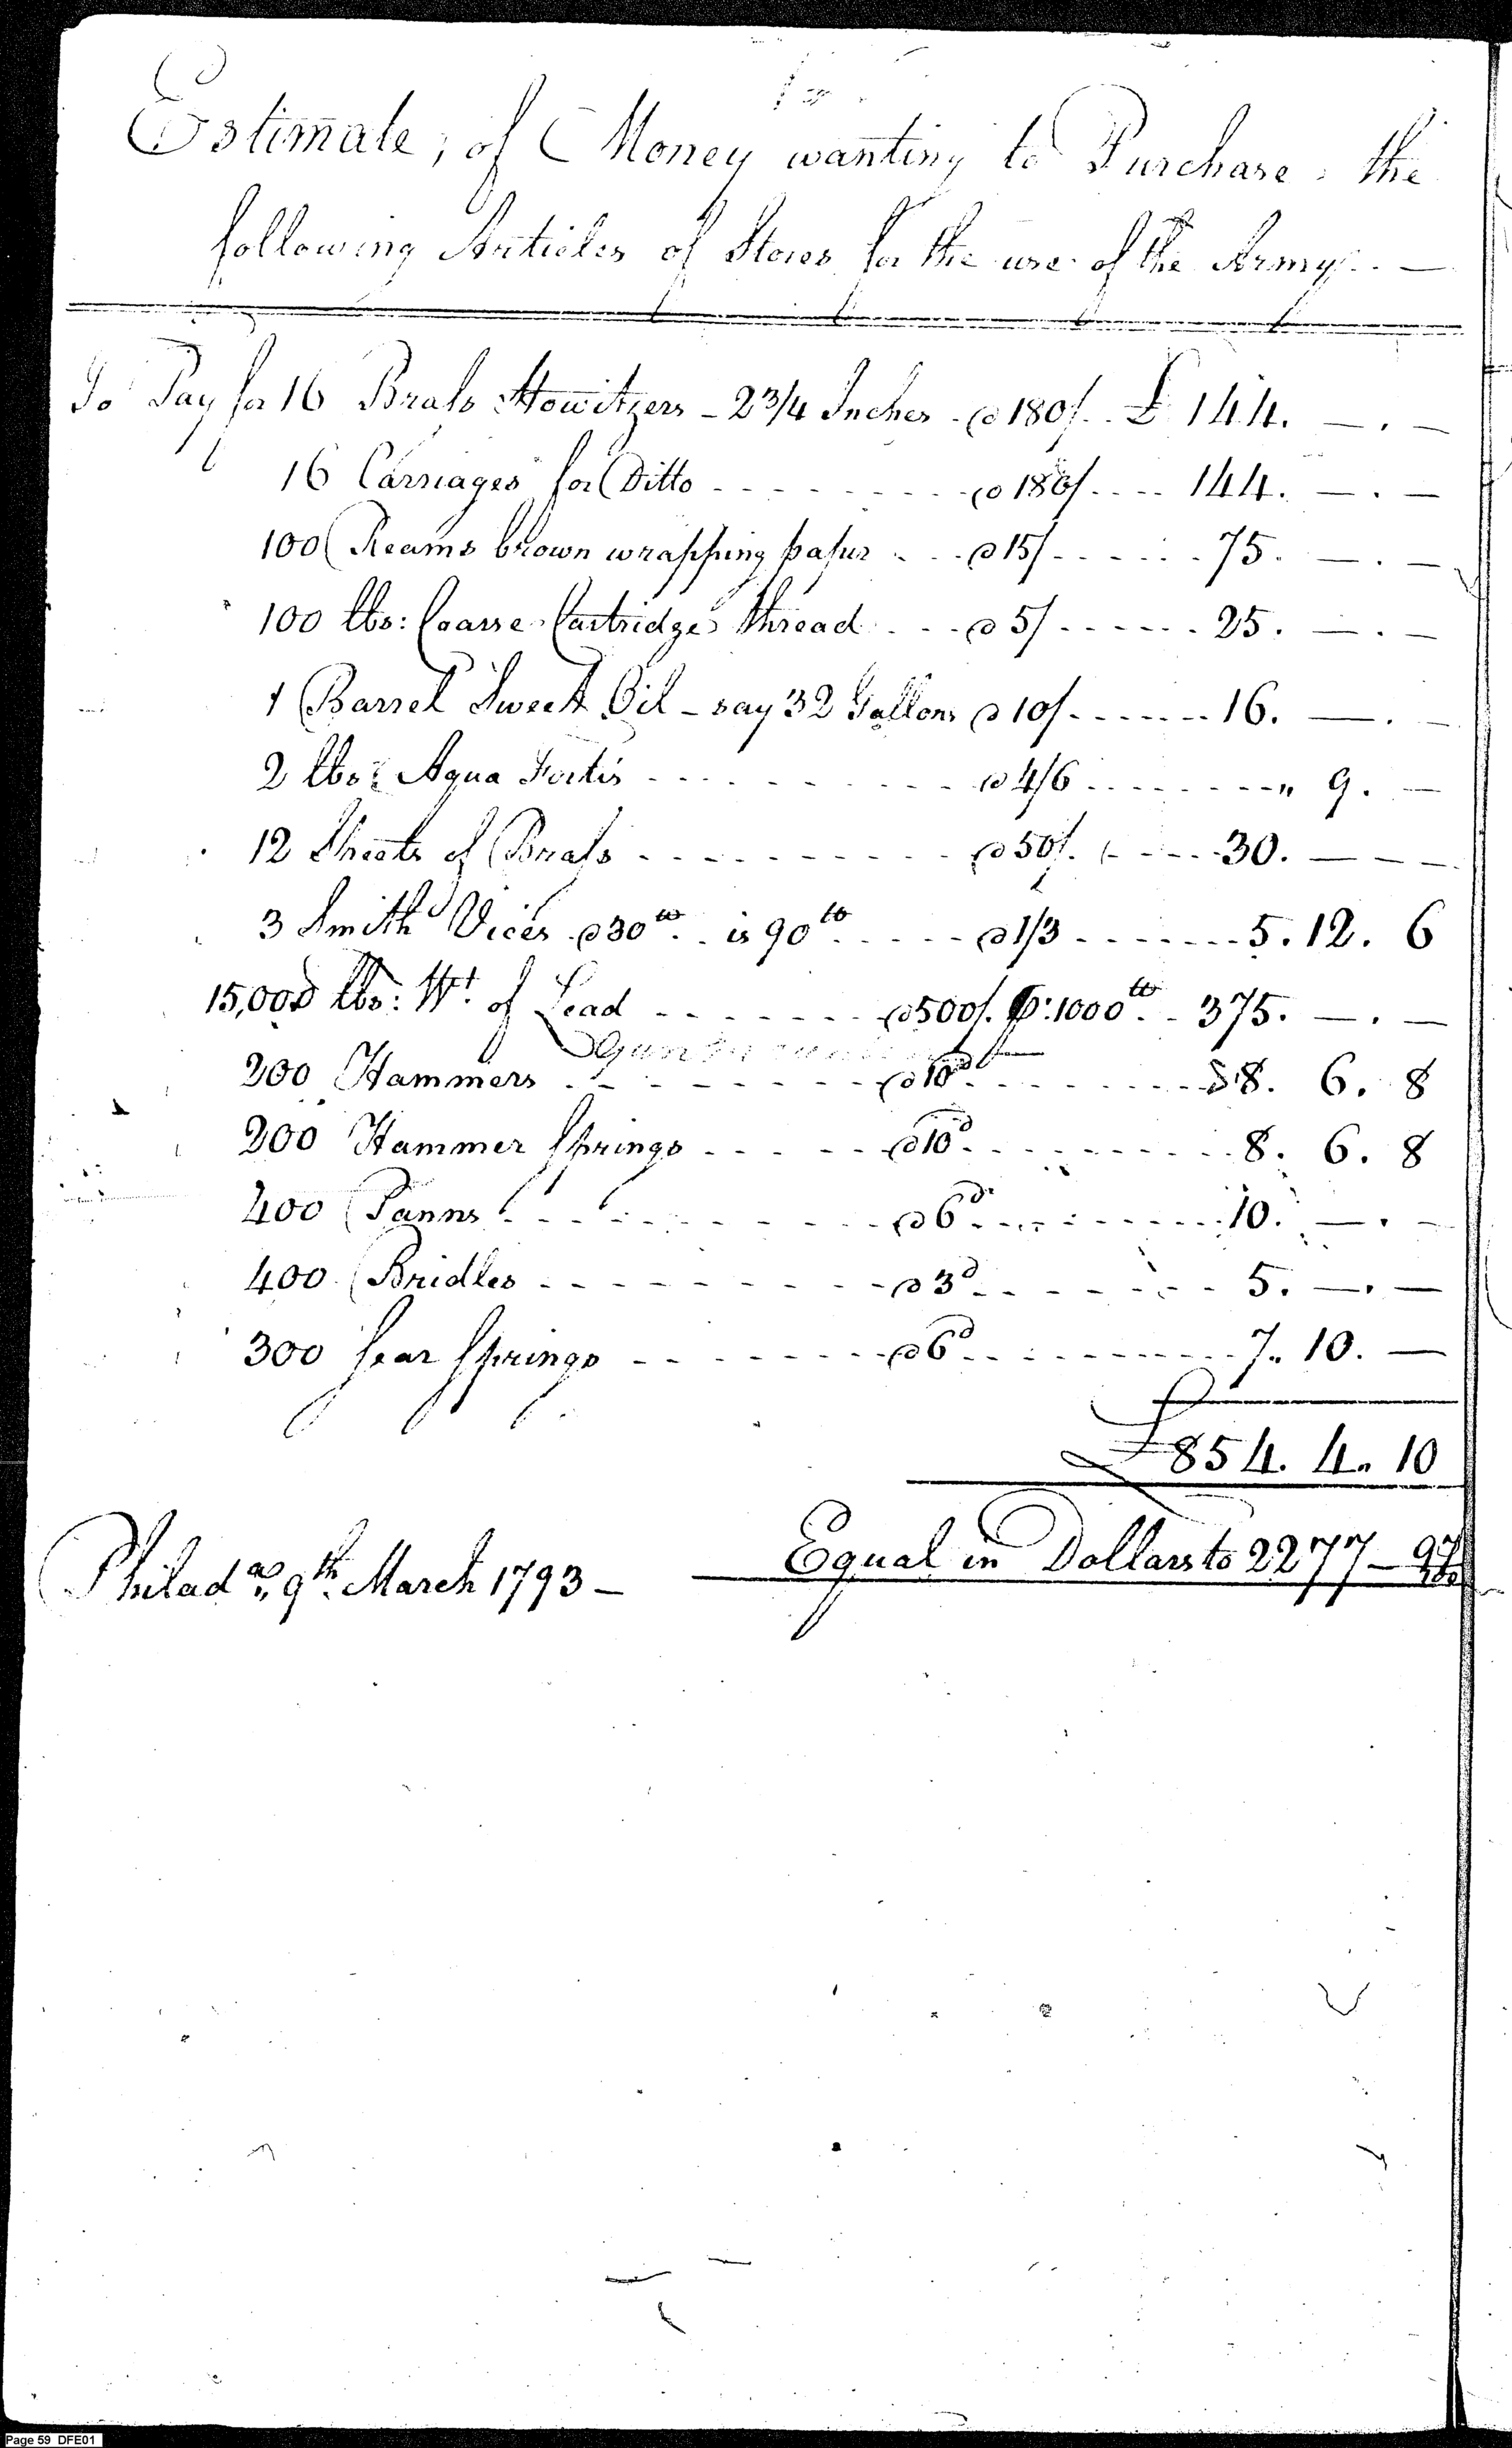 Estimate, of Money wanting to Purchase the
following Articles of Stores for the use of the Army. —
To Pay for 16 Brass Howitzers - 2 3/4 Inches @ 180/. £ 144. — . —
16 Carriages for Ditto @ 180/ 144. — . —
100 Reams brown wrapping paper @ 15/ 75. — . —
100 lbs: Coarse Cartridge thread @ 5/ 25. — . —
1 Barrel Sweet Oil - say 32 Gallons @ 10/ 16. — . —
2 lbs: Aqua Fortis @ 4/6 " 9. —
12 Sheets of Brass @ 50/. 30. — — —
3 Smith Vices @ 30 lb. is 90 lb @ 1/3 5. 12. 6
15,000 lbs: Wt. of Lead @ 500/. p: 1000 lb 375. — . —
200 Hammers @ 10d 8. 6. 8
200 Hammer Springs @ 10d 8. 6. 8
400 Panns @ 6d 10. — . —
400 Bridles @ 3d 5. — . —
300 Sear Springs @ 6d 7. 10. —
£ 854. 4. 10
Equal in Dollars to 2277 - 97/100
Philada. 9th. March 1793 —
Page 59 DFE01